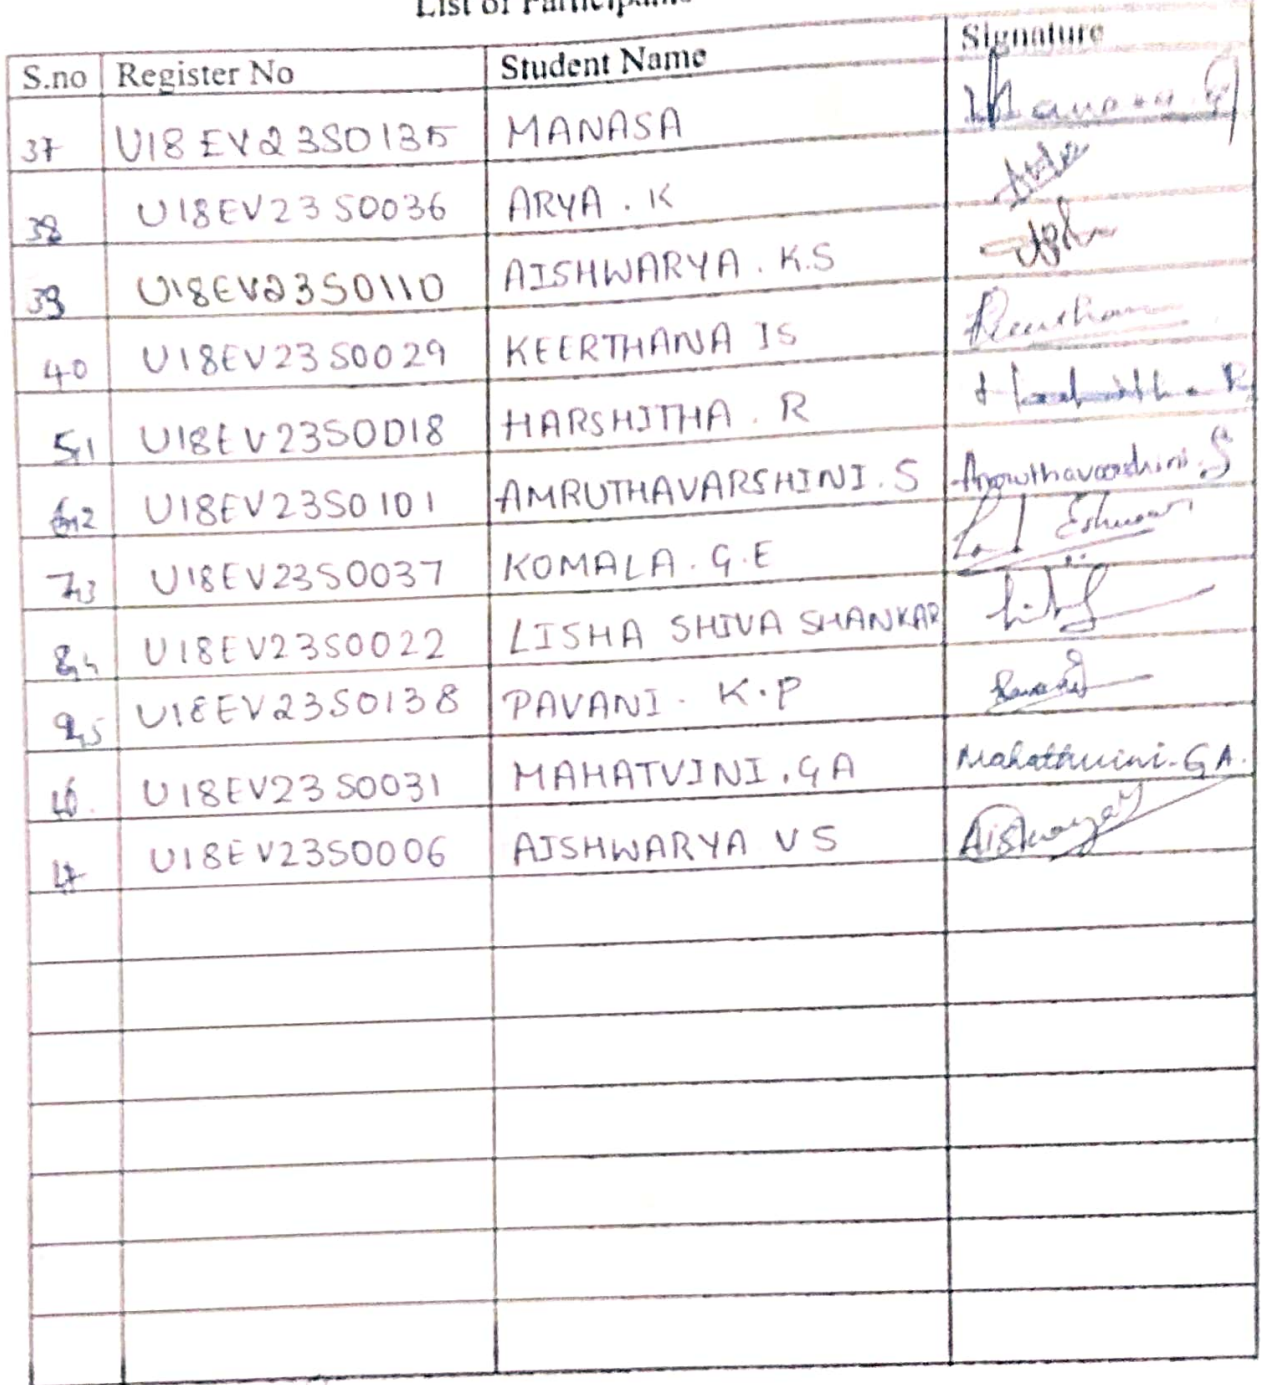 List of Participants
S.no Register No Student Name Signature
37 U18EV23S0135 MANASA Manasa. G
38 U18EV23S0036 ARYA . K
39 U18EV23S0110 AISHWARYA . K.S
40 U18EV23S0029 KEERTHANA IS Keerthana
U18EV23S0018 HARSHITHA . R Harshitha. R
U18EV23S0101 AMRUTHAVARSHINI . S Amruthavarshini. S
U18EV23S0037 KOMALA . G.E
U18EV23S0022 LISHA SHIVA SHANKAR
U18EV23S0138 PAVANI . K.P
U18EV23S0031 MAHATVINI . GA Mahathvini. G A.
U18EV23S0006 AISHWARYA V S Aishwarya